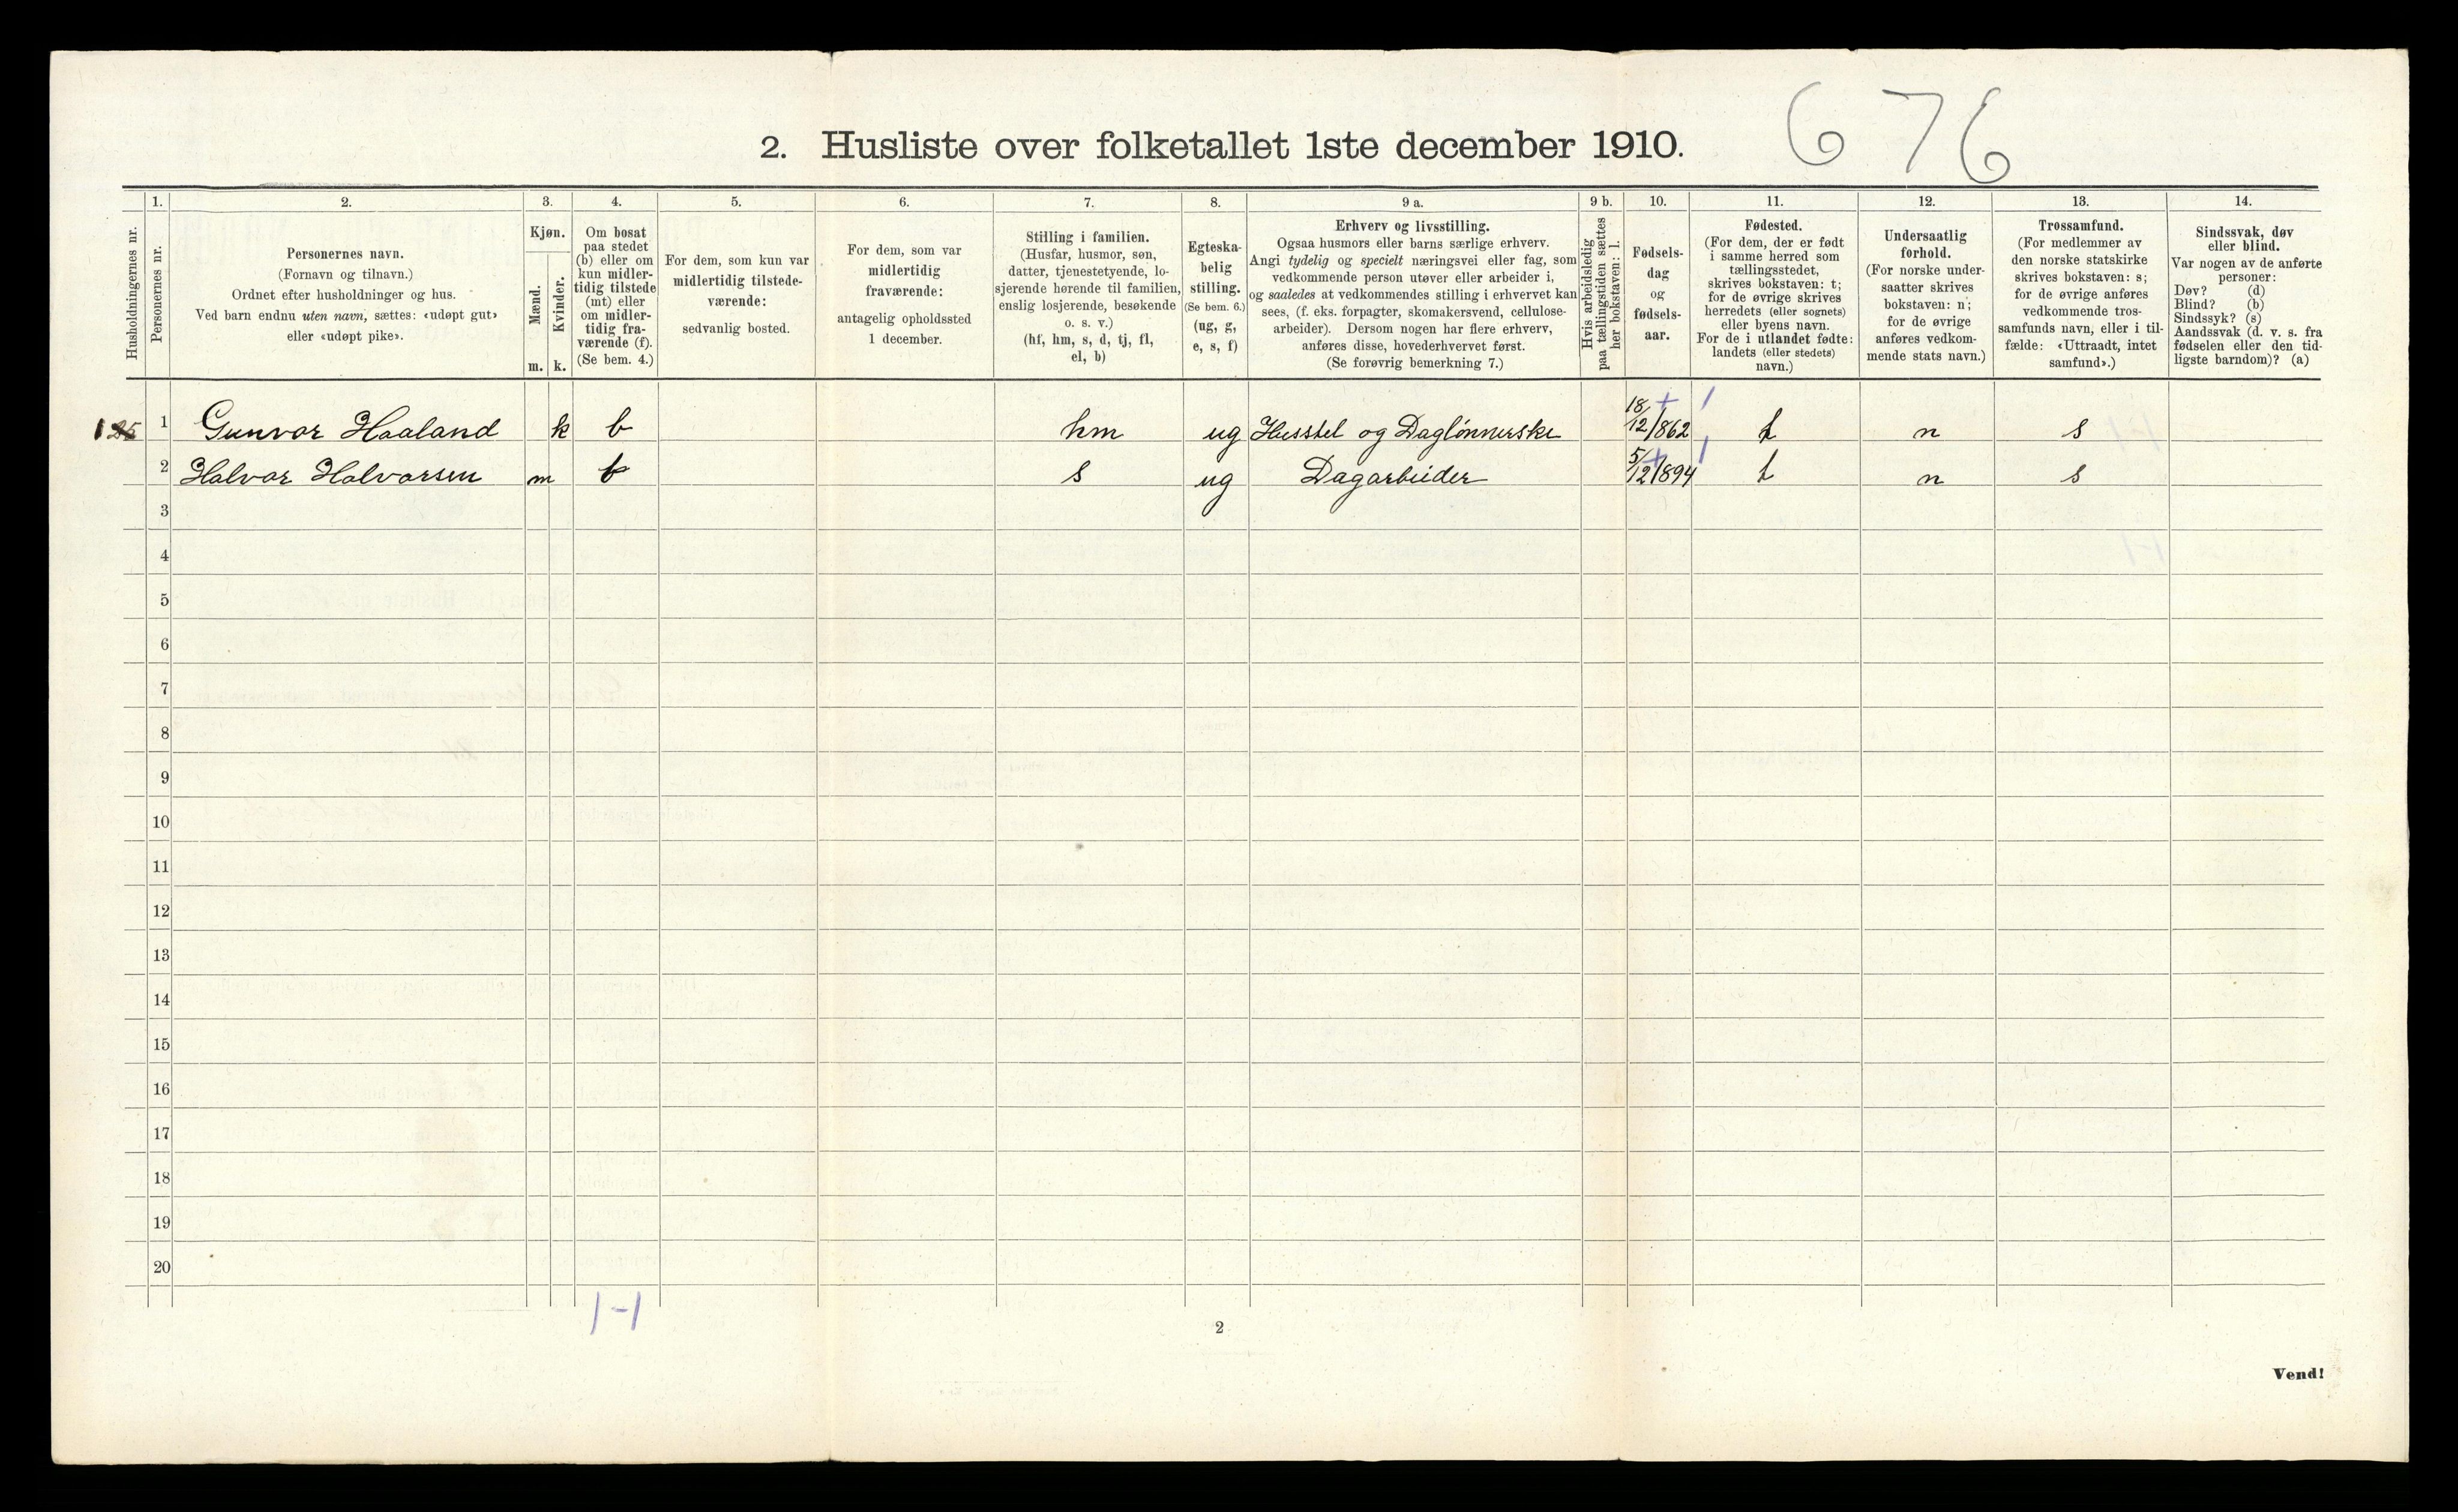 676
2. Husliste over folketallet 1ste december 1910.
Husholdningernes nr.
1.
Personernes nr.
2.
Personernes navn.
(Fornavn og tilnavn.)
Ordnet efter husholdninger og hus.
Ved barn endnu uten navn, sættes: «udøpt gut»
eller «udøpt pike».
3.
Kjøn.
Mænd.
Kvinder.
m. k.
4.
Om bosat
paa stedet
(b) eller om
kun midler-
tidig tilstede
(mt) eller
om midler-
tidig fra-
værende (f).
(Se bem. 4.)
5.
For dem, som kun var
midlertidig tilstede-
værende:
sedvanlig bosted.
6.
For dem, som var
midlertidig
fraværende:
antagelig opholdssted
1 december.
7.
Stilling i familien.
(Husfar, husmor, søn,
datter, tjenestetyende, lo-
sjerende hørende til familien,
enslig losjerende, besøkende
o. s. v.)
(hf, hm, s, d, tj, fl,
el, b)
8.
Egteska-
belig
stilling.
(Se bem. 6.)
(ug, g,
e, s, f)
9 a.
Erhverv og livsstilling.
Ogsaa husmors eller barns særlige erhverv.
Angi tydelig og specielt næringsvei eller fag, som
vedkommende person utøver eller arbeider i,
og saaledes at vedkommendes stilling i erhvervet kan
sees, (f. eks. forpagter, skomakersvend, cellulose-
arbeider). Dersom nogen har flere erhverv,
anføres disse, hovederhvervet først.
(Se forøvrig bemerkning 7.)
9 b.
Hvis arbeidsledig
paa tællingstiden sættes
her bokstaven: l.
10.
Fødsels-
dag
og
fødsels-
aar.
11.
Fødested.
(For dem, der er født
i samme herred som
tællingsstedet,
skrives bokstaven: t;
for de øvrige skrives
herredets (eller sognets)
eller byens navn.
For de i utlandet fødte:
landets (eller stedets)
navn.)
12.
Undersaatlig
forhold.
(For norske under-
saatter skrives
bokstaven: n;
for de øvrige
anføres vedkom-
mende stats navn.)
13.
Trossamfund.
(For medlemmer av
den norske statskirke
skrives bokstaven: s;
for de øvrige anføres
vedkommende tros-
samfunds navn, eller i til-
fælde: «Uttraadt, intet
samfund».)
14.
Sindssvak, døv
eller blind.
Var nogen av de anførte
personer:
Døv? (d)
Blind? (b)
Sindssyk? (s)
Aandssvak (d. v. s. fra
fødselen eller den tid-
ligste barndom)? (a)
1 1 Gunvor Haaland k b hm ug Husstel og Daglönnerske 18/12/862 t n s
2 Halvor Halvorsen m b s ug Dagarbeider 5/12/1894 t n s
3
4
5
6
7
8
9
10
11
12
13
14
15
16
17
18
19
20
1-1
2
Vend!